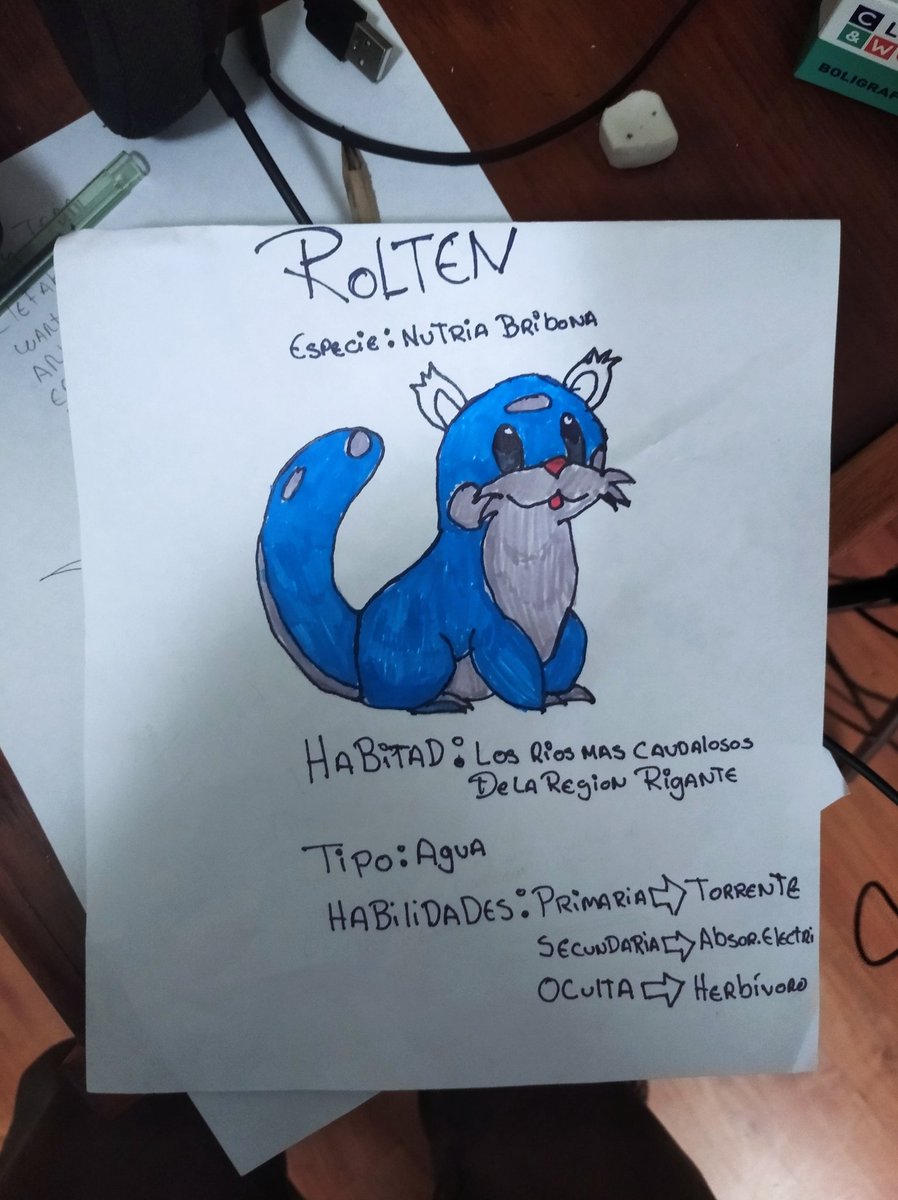 ROLTEN
ESPECIE: NUTRIA BRIBONA
HABITAD: LOS RIOS MAS CAUDALOSOS
DE LA REGION RIGANTE
TIPO: AGUA
HABILIDADES: PRIMARIA ⇨ TORRENTE
SECUNDARIA ⇨ ABSOR. ELECTRI
OCULTA ⇨ HERBÍVORO
C L
& W
BOLIGRAF